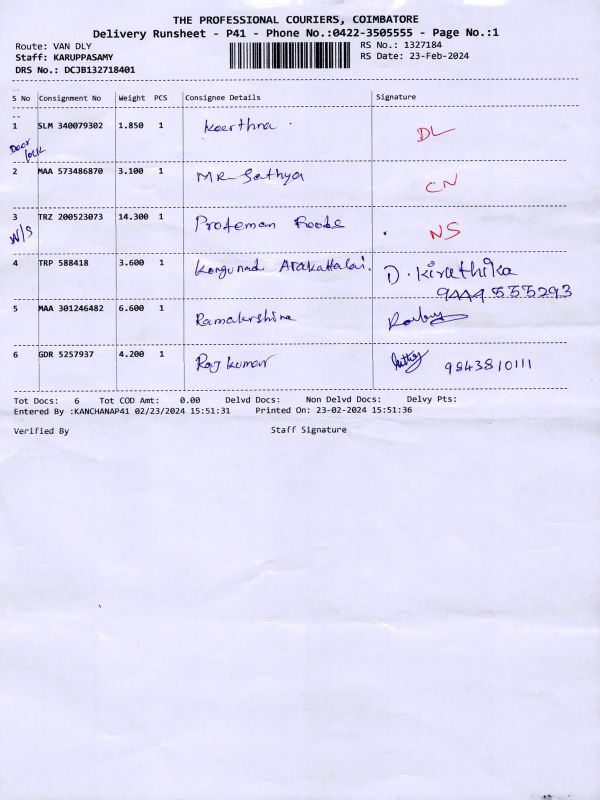 THE PROFESSIONAL COURIERS, COIMBATORE
Delivery Runsheet - P41 - Phone No.:0422-3505555 - Page No.:1
Route: VAN DLY RS No.: 1327184
Staff: KARUPPASAMY RS Date: 23-Feb-2024
DRS No.: DCJB132718401
S No Consignment No Weight PCS Consignee Details Signature
1 SLM 340079302 1.850 1 Keerthna DL
Door lock
2 MAA 573486870 3.100 1 MR Sathya CN
3 TRZ 200523073 14.300 1 Proteman Foods NS
N/S
4 TRP 588418 3.600 1 Kongunad Arakattalai. D. Kiruthika
9444555293
5 MAA 301246482 6.600 1 Ramakrshina
6 GDR 5257937 4.200 1 Raj kumar 9843810111
Tot Docs: 6 Tot COD Amt: 0.00 Delvd Docs: Non Delvd Docs: Delvy Pts:
Entered By :KANCHANAP41 02/23/2024 15:51:31 Printed On: 23-02-2024 15:51:36
Verified By Staff Signature